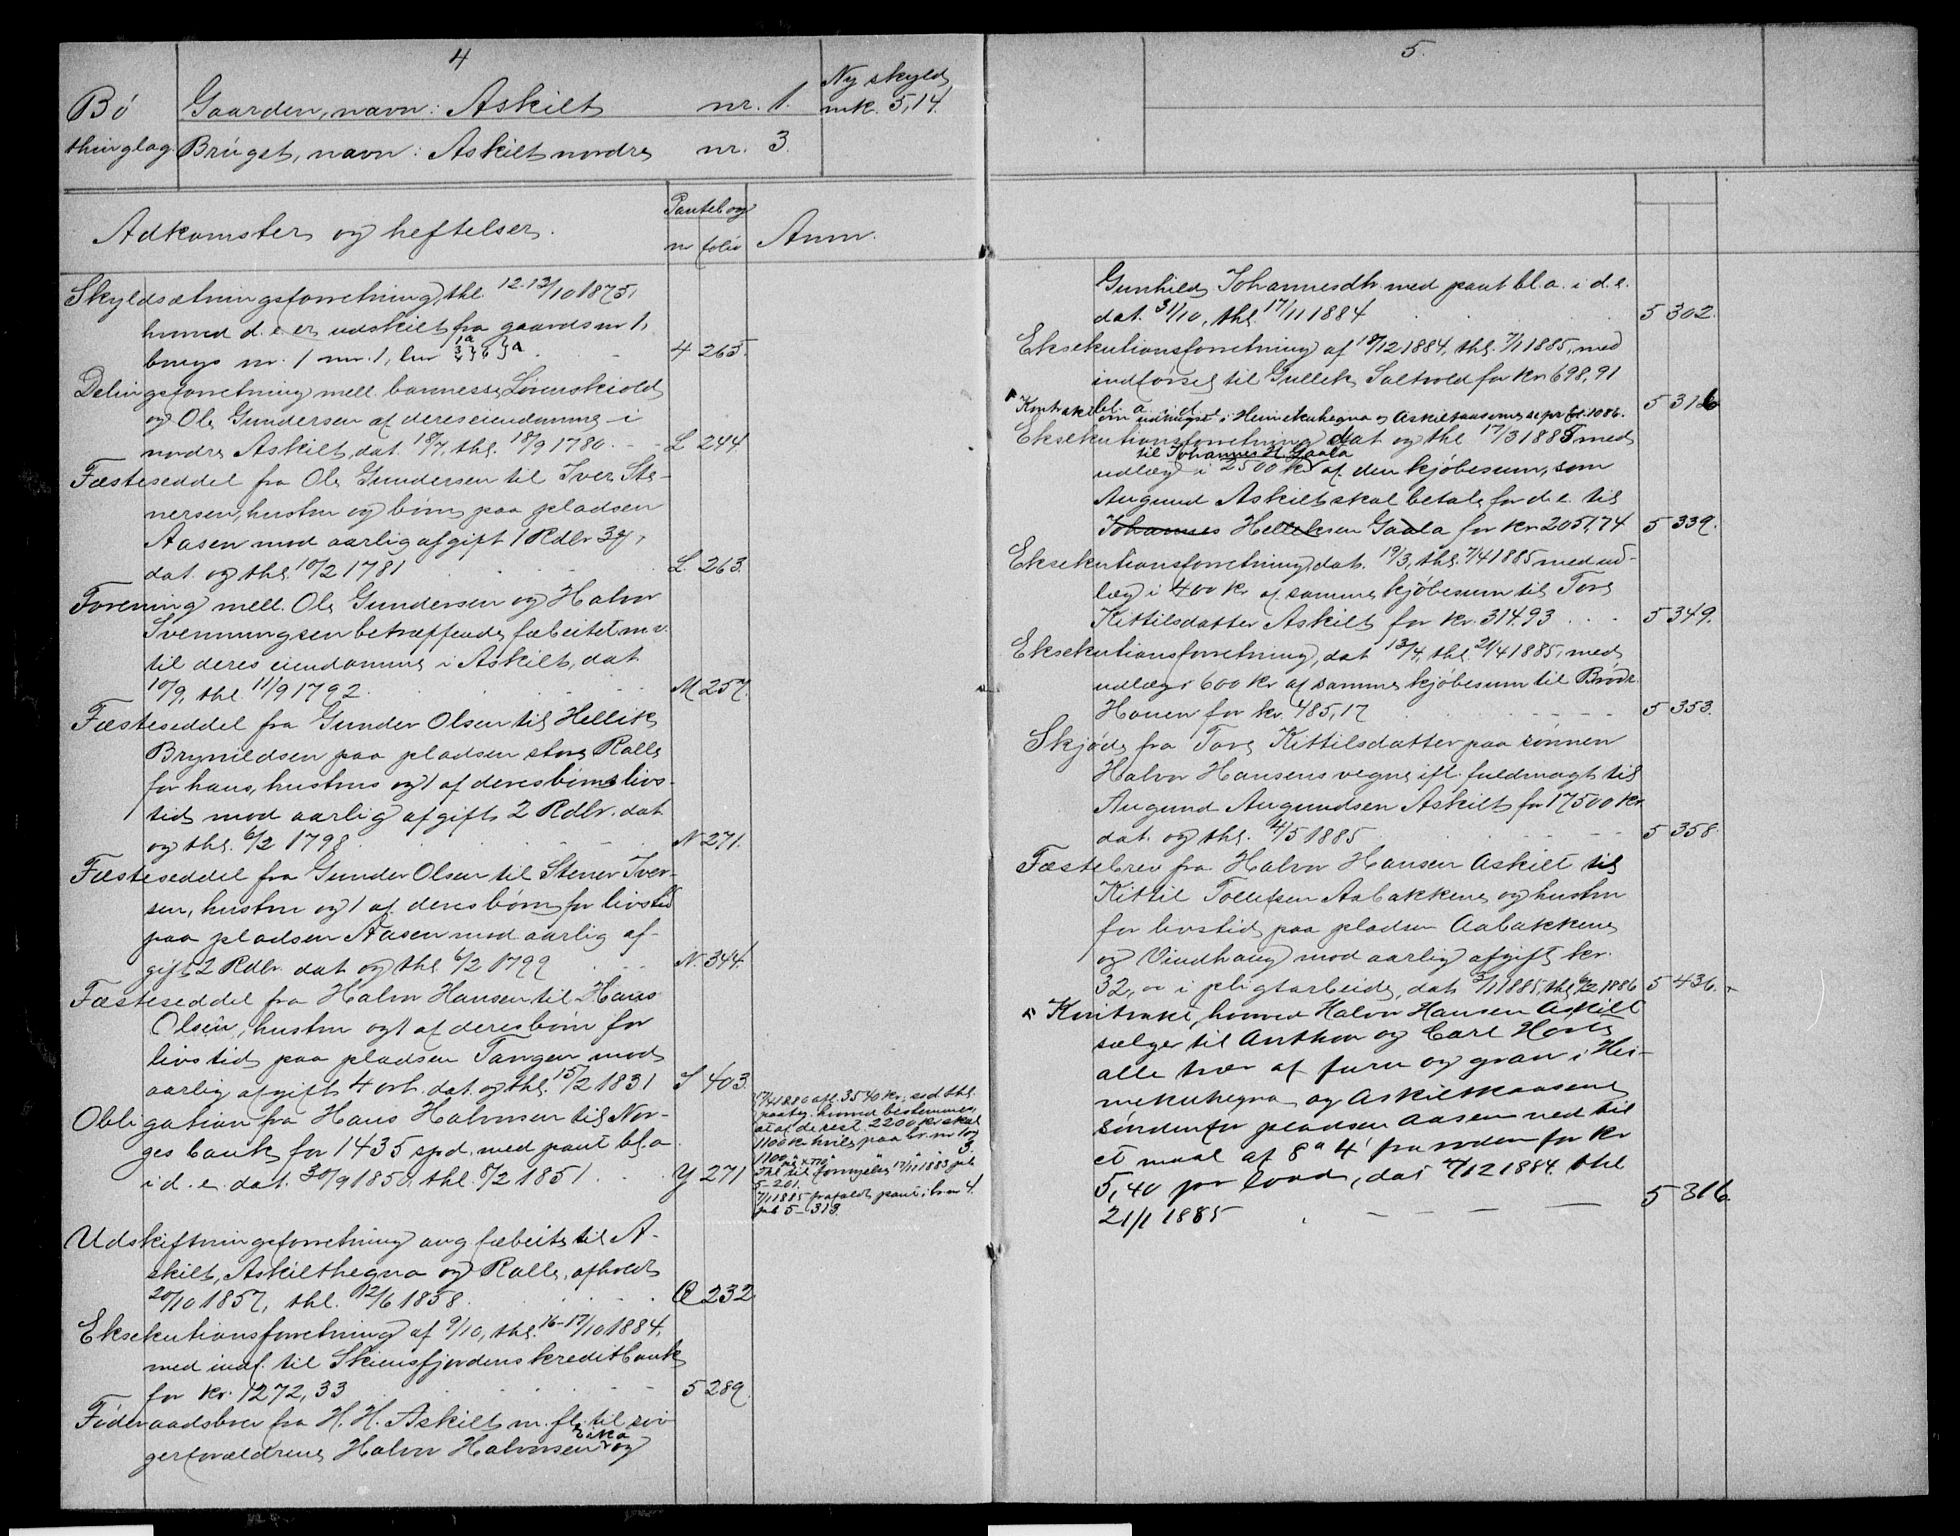 4
Bö Gaarden, navn: Askilt nr. 1. Ny skyld
mk. 5,14.
thinglag. Brúget, navn: Askilt nordre nr. 3.
Adkomster og heftelser. Pantebog
nr folio Anm.
Skyldsætningsforretning, thl. 12-13/10 1875,
hvorved d. e. er udskilt fra gaards nr 1,
brugs nr. 1 4 265.
Delingsforretning mell. Løvenskiold
og Ole Gundersen af deres eiendomme i
nordre Askilt, dat. 18/7, thl. 18/9 1780. L 244
Fæsteseddel fra Ole Gundersen til Iver Ste-
nersen, hustru og börn paa pladsen
Aasen mod aarlig afgift 1 Rdlr 3
dat. og thl. 10/2 1781 L. 263.
Forening mell. Ole Gundersen og Halvor
Svennungsen betræffende fæbeitet m.v.
til deres eiendomme i Askilt, dat
10/9, thl 11/9 1792. M 257.
Fæsteseddel fra Gunder Olsen til Hellik
Brynildsen paa pladsen store Ralle
for hans, hustrus og 1 af deres börns livs-
tid mod aarlig afgift 2 Rdlr. dat
og thl. 6/2 1798 N 271.
Fæsteseddel fra Gunder Olsen til Stener Iver-
sen, hustru og 1 af deres börn for livstid
paa pladsen Aasen mod aarlig af-
gift 2 Rdlr. dat og thl 6/2 1799 N. 344.
Fæsteseddel fra Halvor Hansen til Hans
Olsen, hustru og 1 af deres börn for
livstid paa pladsen Tangen mod
aarlig afgift 4 ort. dat. og thl. 15/2 1831 S 403.
Obligation fra Hans Halvorsen til Nor-
ges bank for 1435 spd. med pant bl. a
i d. e. dat. 30/9 1850, thl. 8/2 1851. Y 271
17/4 1880 afl. 3540 kr; sed. thl.
paateg. hvorved bestemmes
at af de rest. 2200 kr skal
1100 kr hvile paa br. nr 1 og
1100 3.
Thl til fornyelse 17/11 1883 pb
5-201.
7/1 1885 frafaldt pant i br nr 4.
pb 5-313.
Udskiftningsforretning ang fæbeite til A-
skilt, Askilthegna og Ralle, afholdt
20/10 1857, thl. 12/6 1858. Q 232
Eksekutionsforretning af 9/10, thl. 16-17/10 1884,
med indf. til Skiensfjordens kreditbank
for kr. 1272,33 5 289.
Föderaadsbrev fra H. H. Askilt m. fl. til svi-
gerforældrene Halvor Halvorsen Eika og
5.
Gunhild Johannesdtr med pant bl. a. i d. e.
dat. 31/10, thl. 17/11 1884 5 302.
Eksekutionsforretning af 18/12 1884, thl. 7/1 1885, med
indförsel til Gullek Saltvold for kr 698,91
bl. a. i d. e 5 316
Kontrakt om udhugst i Heimekuhegna og Askiltaasene se pr fol. 1086.
Eksekutionsforretning dat og thl 17/3 1885 med
til Johannes H. Gaala
udlæg i 2500 kr af den kjöbesum, som
Augund Askilt skal betale for d. e. til
Johannes Helleksen Gaala for kr 2051,74 5 339.
Eksekutionsforretning dat. 19/3, thl. 7/4 1885 med ud-
læg i 400 kr af samme kjöbesum til Tore
Kittilsdatter Askilt for kr. 314.93 5 349.
Eksekutionsforretning, dat 13/4, thl. 21/4 1885, med
udlæg i 600 kr af samme kjöbesum til Brödr.
Hauen for kr. 485,17 5 353.
Skjöde fra Tore Kittilsdatter paa sönnen
Halvor Hansens vegne ifl. fuldmagt til
Augund Augundsen Askilt for 17500 kr
dat. og thl. 4/5 1885 5 358.
Fæstebrev fra Halvor Hansen Askilt til
Kittil Tollefsen Aabakkene og hustru
for livstid paa pladsen Aabakkene
og Vindhaug mod aarlig afgift kr.
32,00 i pligtarbeide, dat. 3/11 1885, thl. 6/2 1886 5 436.
Kontrakt, hvorved Halvor Hansen Askilt
sælger til Anthon og Carl Horte
alle trær af furu og gran i Hei-
mekuhegna og Askiltaasene
söndenfor pladsen Aasen ned til
et maal af 8" à 4' fra roden for kr
5,40 pr. load, dat 4/12 1884. thl
21/1 1885 5 316.